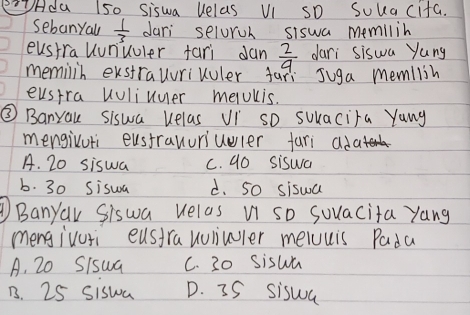 Ada 150 Siswa Kelas VI SD Suka Cita.
Sebanyak 1/3 dari seluruh siswa memilih
ekstra kurikuler tari dan 2/9 dari siswa yang
memilih ekstrakurikuler tari Juga memilih
ekstra kulikuler melukis.
③ Banyak Siswa kelas VI SD sukacita yang
mengikuti ekstrakurikuler tari ada
A. 20 siswa C. 40 siswa
b. 30 siswa d. 50 siswa
④ Banyak Siswa kelas VI SD Sukacita yang
mengikuti ekstra kulikuler melukis Pada
A. 20 Siswa C. 30 siswa
B. 25 siswa D. 35 siswa